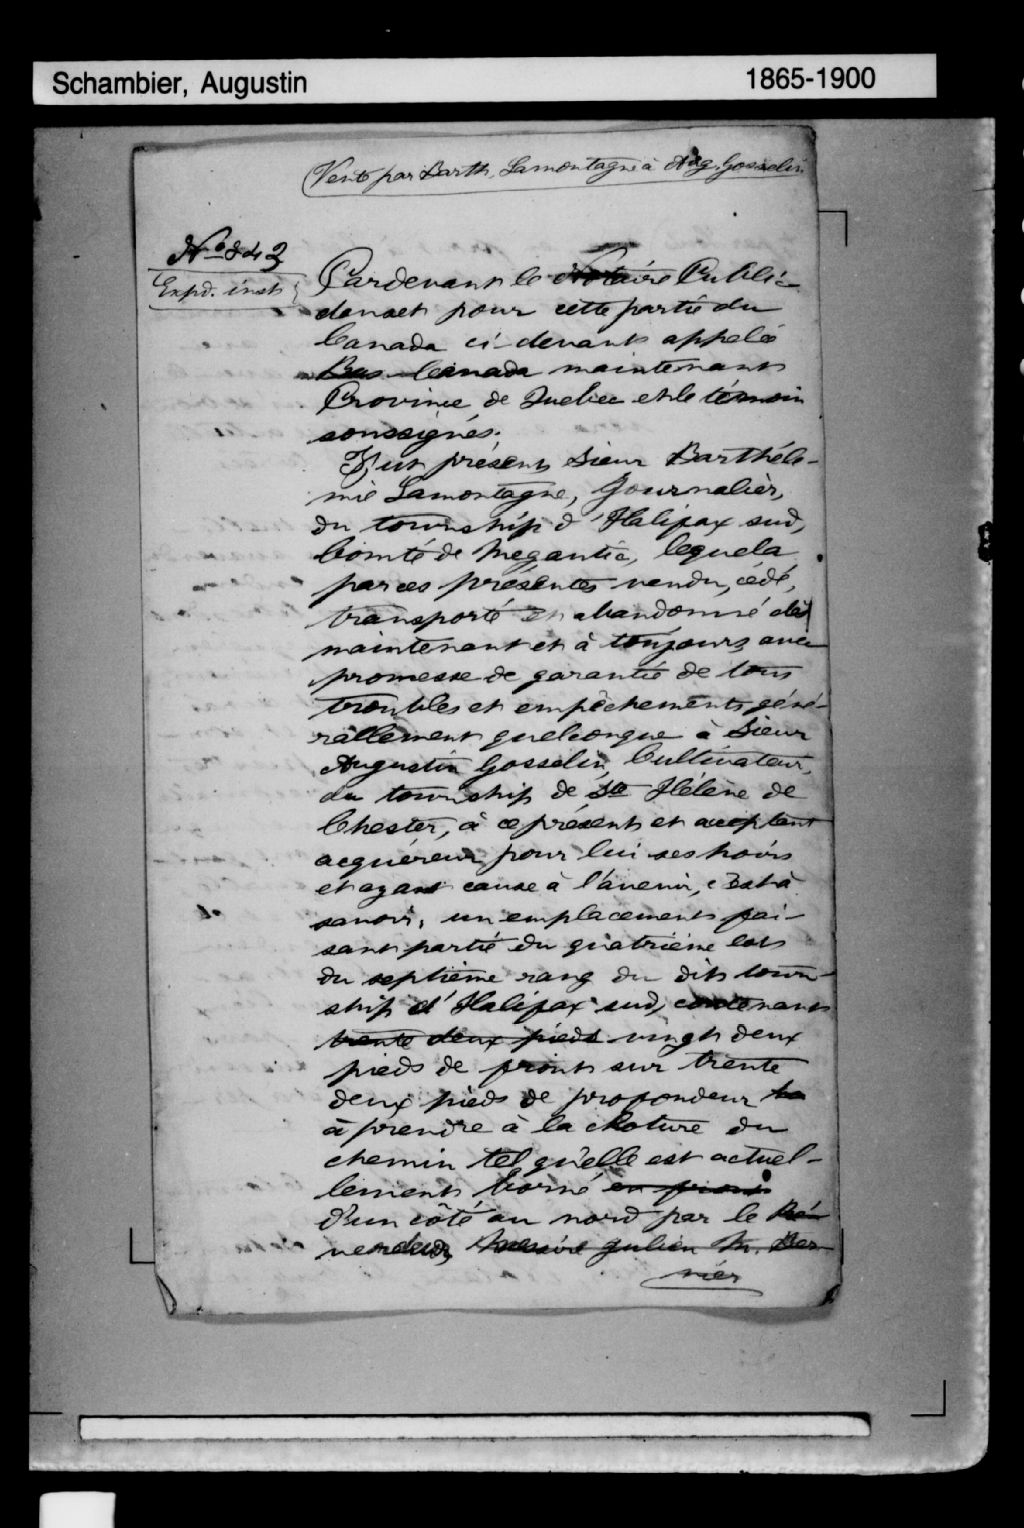 Schambier, Augustin
1865-1900
Vente par Barth. Lamontagne à Aug. Gosselin
No 843
Expd. inst
Pardevant le Notaire Public
dans et pour cette partie du
Canada ci-devant appelée
Bas-Canada maintenant
Province de Quebec et le témoin
soussignés.
Fut présent Sieur Barthéle-
mie Lamontagne, Journalier,
du township d'Halifax sud,
Comté de Megantic, lequel a
par ces présentes vendu, cédé,
transporté et abandonné dès
maintenant et à toujours avec
promesse de garantie de tous
troubles et empêchements géné-
rallement quelconque à Sieur
Augustin Gosselin, Cultivateur,
du township de Ste Hélène de
Chester, à ce présent et acceptant
acquéreur pour lui ses hoirs
et ayant cause à l'avenir, c'est à
savoir, un emplacement fai-
sant partie du quatrième lot
du septième rang du dit town-
ship d'Halifax sud, contenant
trente deux pieds vingt deux
pieds de front sur trente
deux pieds de profondeur
à prendre à la cloture du
chemin tel qu'elle est actuel-
lement borné en front
d'un côté au nord par le
vendeur, Messire Julien M. Ber-
nier